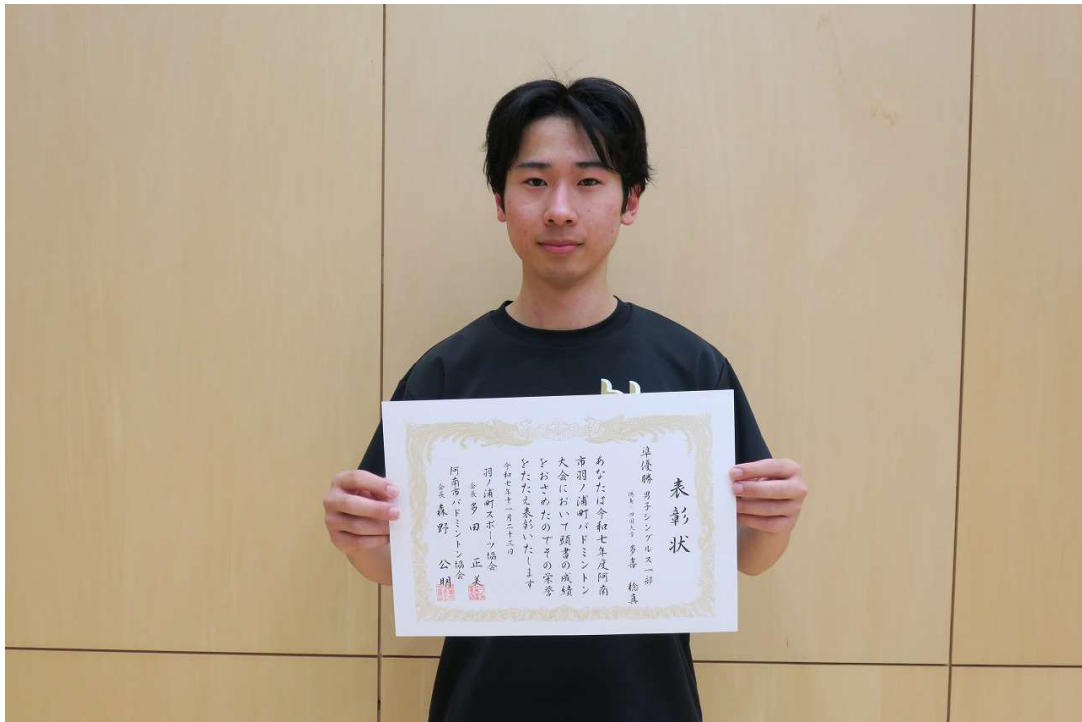 表彰状
準優勝 男子シングルス一部
徳島・四国大学 多喜 稔真
あなたは令和七年度阿南
市羽ノ浦町バドミントン
大会において頭書の成績
をおさめたのでその栄誉
をたたえ表彰いたします
令和七年十一月二十三日
羽ノ浦町スポーツ協会
会長 多田 正美
阿南市バドミントン協会
会長 森野 公明